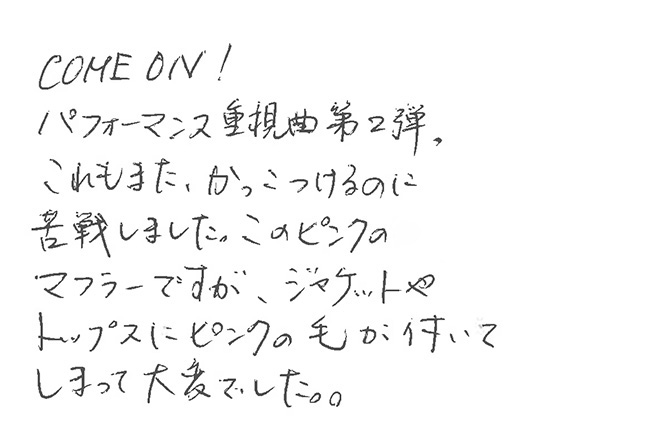 COME ON!
パフォーマンス重視曲第2弾。
これもまた、かっこつけるのに
苦戦しました。このピンクの
マフラーですが、ジャケットや
トップスにピンクの毛が付いて
しまって大変でした。。